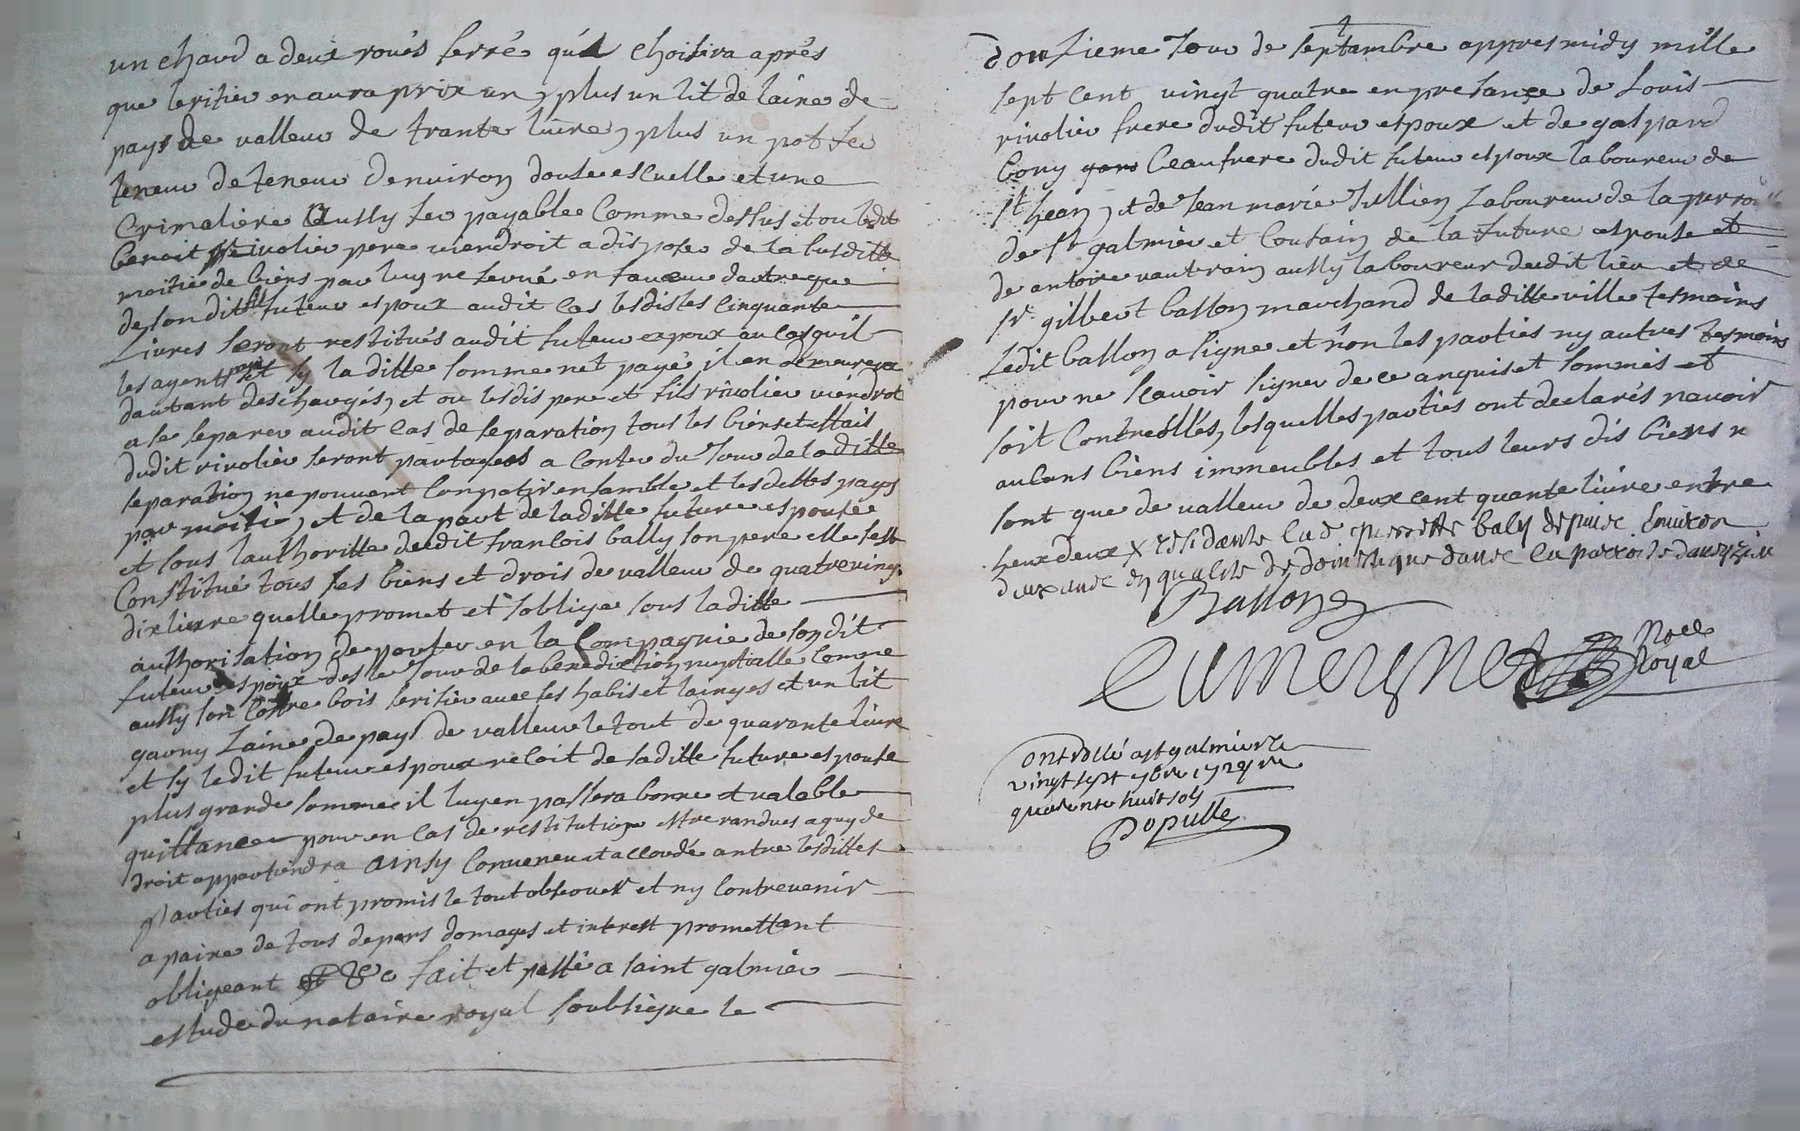 un chard a deux roués ferré qu'il choisira aprés
que leritier en aura prix un, plus un lit de laine de
pays de valleur de trante livre, plus un pot fer
teneur de teneur denviron douse escuelle et une
Crimaliere Aussy fer payable Comme dessus et ou ledit
benoit rivolier pere viendroit a disposer de la susditte
moitié de biens par luy reservé en faveur dautre que
de son dit fils futeur espoux audit cas lesdistes cinquante
Livres seront restitués audit futeur espoux au cas quil
les ayent payé et sy la ditte somme net payé il en demeurera
dautant deschargés, et ou lesdis pere et fils rivolier viendrot
a se separer audit cas de separation tous les biens et effais
dudit rivolier seront partagees a conter du Jour de laditte
separation ne pouvent conpatir ensamble et les dettes payés
par moitié, et de la part de laditte future espouse
et sous lauthoritte dudit francois bally son pere elle sest
Constitué tous ses biens et drois de valleur de quatreving
dix livre quelle promet et soblige sous laditte
authorisation de porter en la Compagnie de son dit
futeur espoux des le Jour de la benediction nuptialle comme
aussy son coffre bois serisier avec ses habis et linges et un lit
garny Laine de pays de valleur le tout de quarante livre
et sy ledit futeur espoux recoit de saditte future espouse
plus grande somme il luy en passera bonne et valable
quittance pour en cas de restitution estre randues a quy de
droit appartiendra Ainsy Conveneu et accordé antre lesdittes
parties qui ont promis le tout observer et ny contrevenir
a paine de tous depens domages et interest promettant
obligeant &c fait et passé a saint galmier
estude du notaire royal soubsigne le
douzieme Jour de septambre appres midy mille
sept cent vingt quatre en presance de Louis
rivolier frere dudit futeur espoux et de gaspard
bony beaufrere dudit futeur espoux laboureur de
st hean, et de Jean marie Jullien Laboureur de la
de st galmier et Cousain de la future espouse et
de antoine vautrain aussy laboureur dudit lieu et de
sr gilbert ballon marchand de laditte ville tesmoins
Ledit ballon a signe et non les parties ny autres tesmoins
pour ne scavoir signer de ce anquis et sommés et
soit Contreollés, lesquelles parties ont declarés navoir
aucuns biens immeubles et tous leurs dis biens n
sont que de valleur de deux cent quante livre entre
heux deux x residante lad. pierrette baly depuis souiron
deux ans en qualité de domestique dans la parroisse daveyzieu
Ballon
Cumergne Nore
Royal
Controllé a st galmier le
vingt sept 7bre 1724 Re
quarente huit sols
Populle